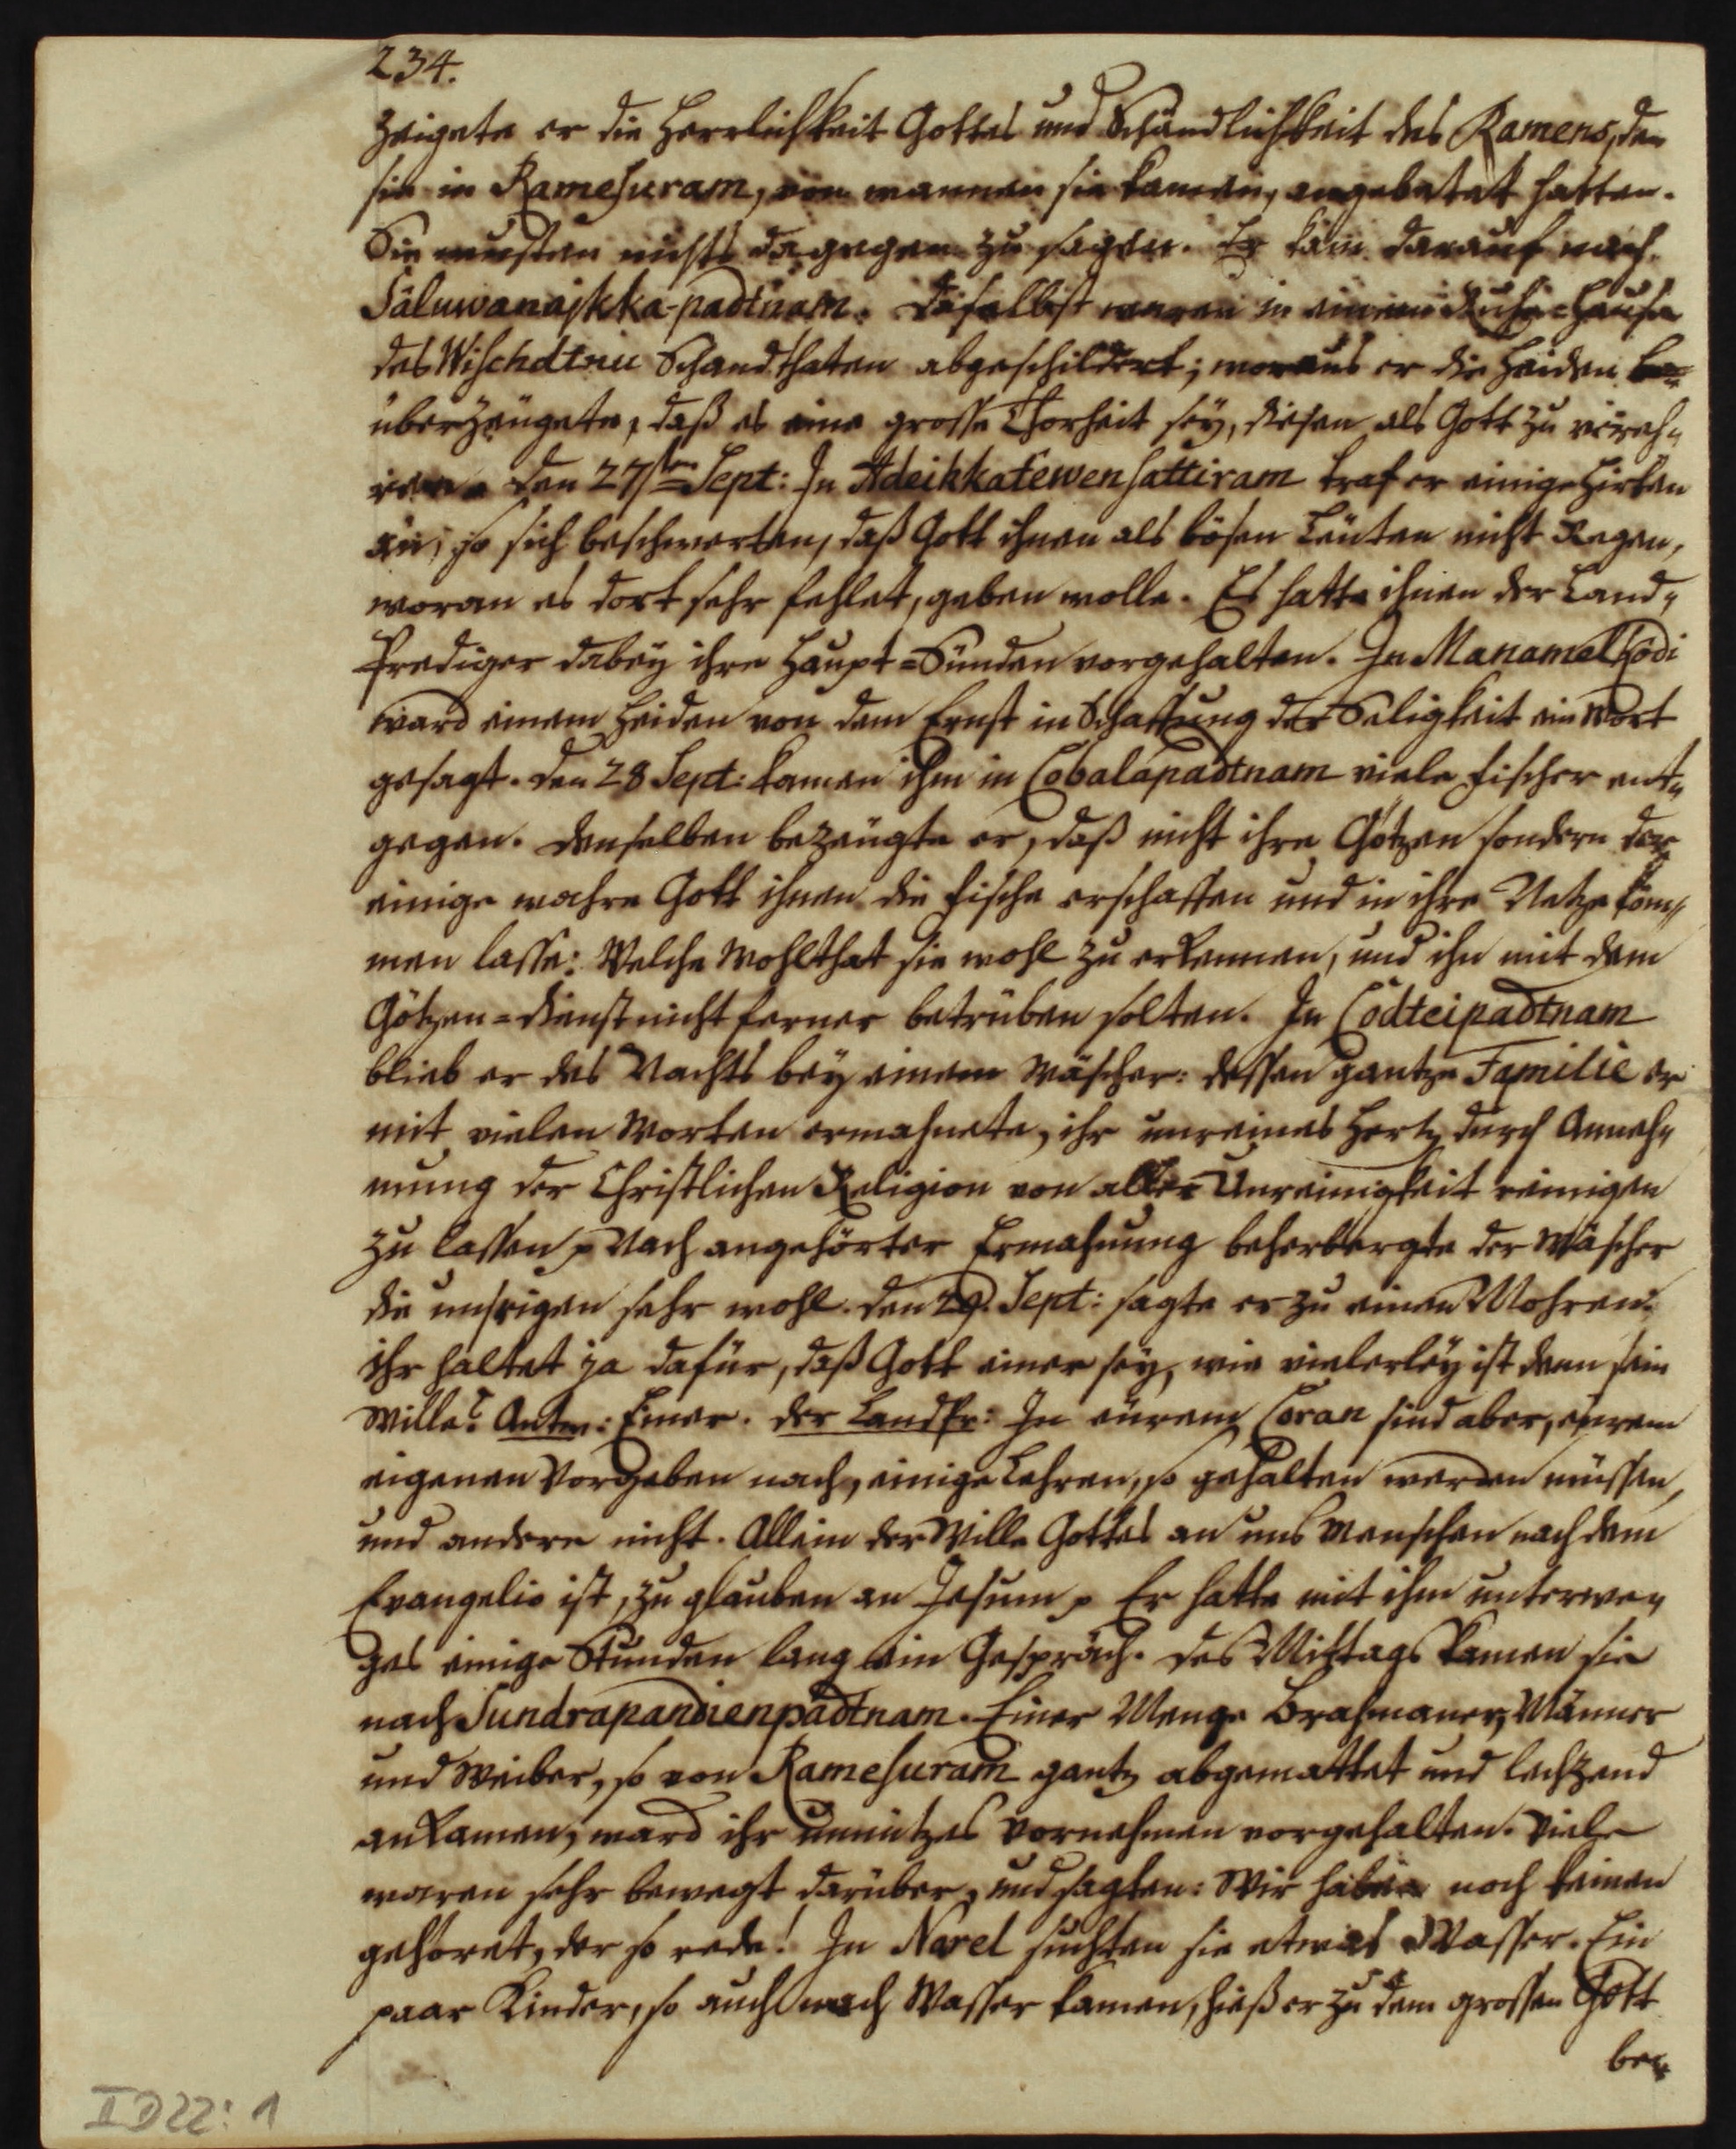 234.
zeigete er die Herrlichkeit Gottes und Schändlichkeit des Ramens, den
sie in Ramesuram, von wannen sie kamen, angebetet hatten.
Sie wusten nichts dagegen zu sagen. Er kam darauf nach
Sâluwanaikka-padtnam. Daselbst waren in einem Ruhe-Hause
des Wischdtnu Schandthaten abgeschildert; woraus er die Heiden
überzeugete, daß es eine grosse Thorheit sey, diesen als Gott zu vereh-
ren. Den 27sten Sept: In Adeikkatewensattiram traf er einige Hirten
an, so sich beschwerten, daß Gott ihnen als bösen Leuten nicht Regen,
woran es dort sehr fehlet, geben wolle. Es hatte ihnen der Land-
Prediger dabey ihre Haupt-Sünden vorgehalten. In Manamelködi
ward einem Heiden von dem Ernst in Schaffung der Seligkeit ein Wort
gesagt. Den 28 Sept: kamen ihm in Cobalapadtnam viele Fischer ent-
gegen. Denselben bezeugte er, daß nicht ihre Götzen sondern der
einige wahre Gott ihnen die Fische erschaffen und in ihre Netze kom-
men lasse: Welche Wohlthat sie wohl zu erkennen, und ihn mit dem
Götzen-Dienst nicht ferner betrüben solten. In Cödteipadtnam
blieb er des Nachts bey einem Wäscher: dessen gantze Familie er
mit vielen Worten ermahnete, ihr unreines Hertz durch Anneh-
mung der Christlichen Religion von aller Unreinigkeit reinigen
zu lassen p Nach angehörter Ermahnung beherbergte der Wäscher
die unsrigen sehr wohl. Den 29. Sept: sagte er zu einen Mohren:
ihr haltet ja dafür, daß Gott einer sey, wie vielerley ist denn sein
Wille? Antw: Einer. Der Landpr: In eurem Coran sind aber, eurem
eigenen Vorgeben nach, einige Lehren, so gehalten werden müssen,
und andere nicht. Allein der Wille Gottes an uns Menschen nach dem
Evangelio ist, zu glauben an Jesum p Er hatte mit ihm unterwe-
ges einige Stunden lang ein Gespräch. Des Mittags kamen sie
nach Sundrapandienpadtnam. Einer Menge Brahmaner, Männer
und Weiber, so von Ramesuram gantz abgemattet und lechzend
ankamen, ward ihr unnützes Vornehmen vorgehalten. Viele
waren sehr bewegt darüber, und sagten: Wir haben noch keinen
gehöret, der so rede! In Narel suchten sie etwas Wasser. Ein
paar Kinder, so auch nach Wasser kamen, hieß er zu dem grossen Gott
be-
I D 22: 1